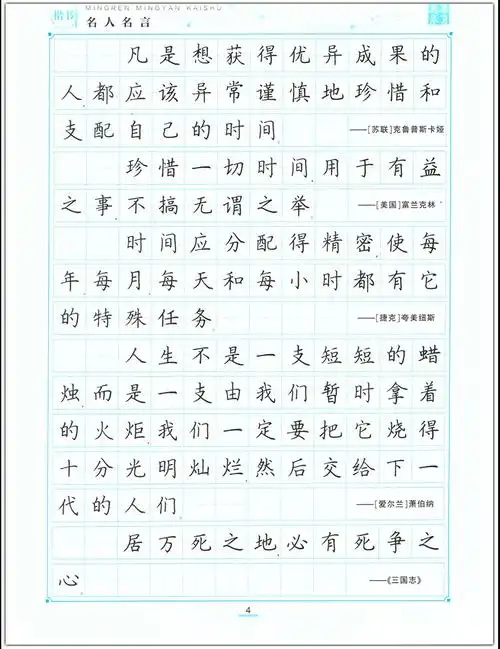 楷书
MINGREN MINGYAN KAISHU
名人名言
凡是想获得优异成果的
人,都应该异常谨慎地珍惜和
支配自己的时间。
——[苏联]克鲁普斯卡娅
珍惜一切时间,用于有益
之事,不搞无谓之举。
——[美国]富兰克林
时间应分配得精密,使每
年、每月、每天和每小时都有它
的特殊任务。
——[捷克]夸美纽斯
人生不是一支短短的蜡
烛,而是一支由我们暂时拿着
的火炬,我们一定要把它烧得
十分光明灿烂,然后交给下一
代的人们。
——[爱尔兰]萧伯纳
居万死之地,必有死争之
心。
——《三国志》
4